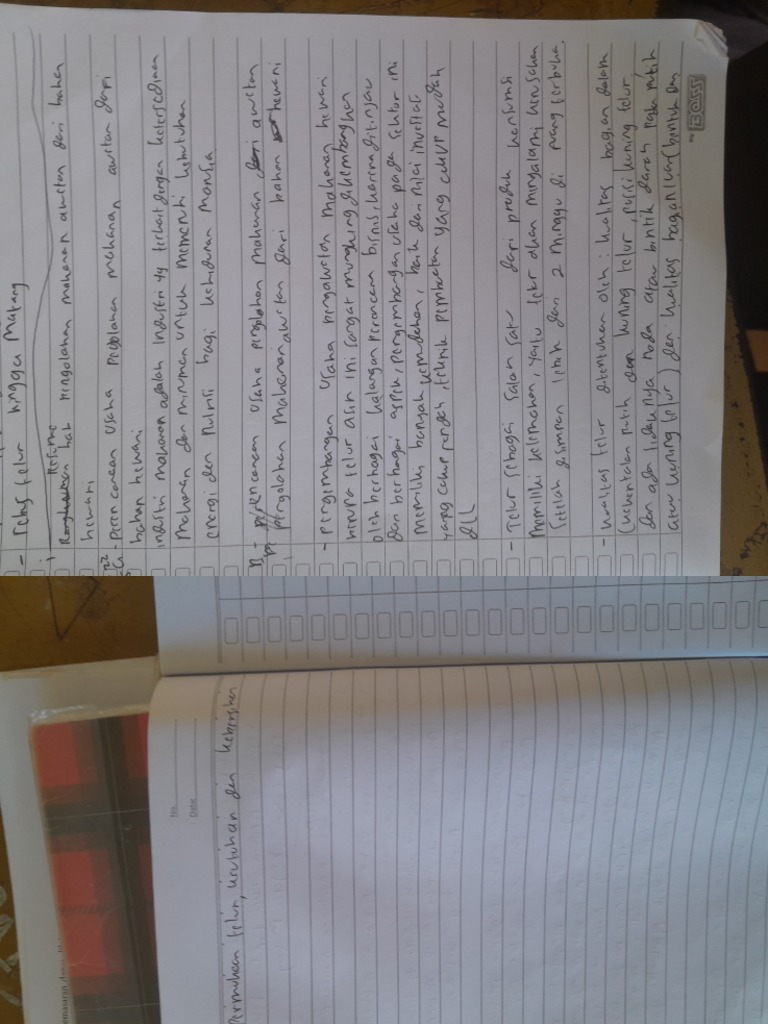 - rebus telur hingga matang
Resume
bab pengolahan makanan awetan dari bahan
hewani
- perencanaan usaha pegolahan makanan awetan dari
bahan hewani
industri makanan adalah industri yg terkait dengan ketersediaan
makanan dan minuman untuk memenuhi kebutuhan
energi dan nutrisi bagi kehidupan manusia
perencanaan usaha pengolahan makanan dari awetan
pengolahan makanan awetan dari bahan hewani
- pengembangan usaha pengawetan makanan hewani
berupa telur asin ini sangat mungkin dikembangkan
oleh berbagai kalangan perencana bisnis, karena ditinjau
dari berbagai aspek, pengembangan usaha pada sektor ini
memiliki banyak kemudahan, baik dari nilai investasi
yang cukup rendah, teknik pembuatan yang cukup mudah
dll
- Telur sebagai salah satu dari produk konsumsi
memiliki kelemahan, yaitu telur akan mengalami kerusakan
setelah disimpan lebih dari 2 minggu di ruang terbuka.
- kualitas telur ditentukan oleh: kualitas bagian dalam
(kekentalan putih dan kuning telur, posisi kuning telur,
dan ada tidaknya noda atau bintik darah pada putih
atau kuning telur) dan kualitas bagian luar (bentuk dan
BOSS
No.
Date:
Permukaan telur, keutuhan dan kebersihan